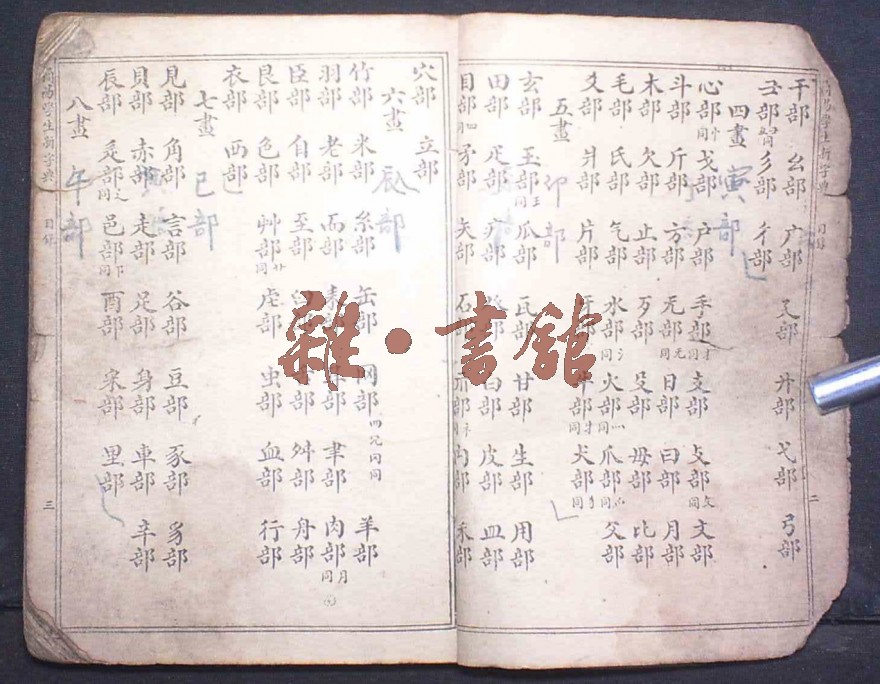 學生新字典 目錄 二
干部 幺部 广部 廴部 廾部 弋部 弓部
彑部 彡部 彳部
四畫 寅部
心部忄同 戈部 户部 手部扌同 支部 攴部攵同 文部
斗部 斤部 方部 无部旡同 日部 曰部 月部
木部 欠部 止部 歹部 殳部 毋部 比部
毛部 氏部 气部 水部氵同 火部灬同 爪部爫同 父部
爻部 爿部 片部 牙部 牛部牜同 犬部犭同
五畫 卯部
玄部 玉部王同 瓜部 瓦部 甘部 生部 用部
田部 疋部 疒部 癶部 白部 皮部 皿部
目部罒同 矛部 矢部 石部 示部礻同 禸部 禾部
穴部 立部
六畫 辰部
竹部 米部 糸部 缶部 网部罒㓁同同 羊部
羽部 老部 而部 耒部 耳部 聿部 肉部月同
臣部 自部 至部 臼部 舌部 舛部 舟部
艮部 色部 艸部艹同 虍部 虫部 血部 行部
衣部 襾部
七畫 巳部
見部 角部 言部 谷部 豆部 豕部 豸部
貝部 赤部 走部 足部 身部 車部 辛部
辰部 辵部辶同 邑部阝同 酉部 釆部 里部
八畫 午部
學生新字典 目錄 三
雜·書館